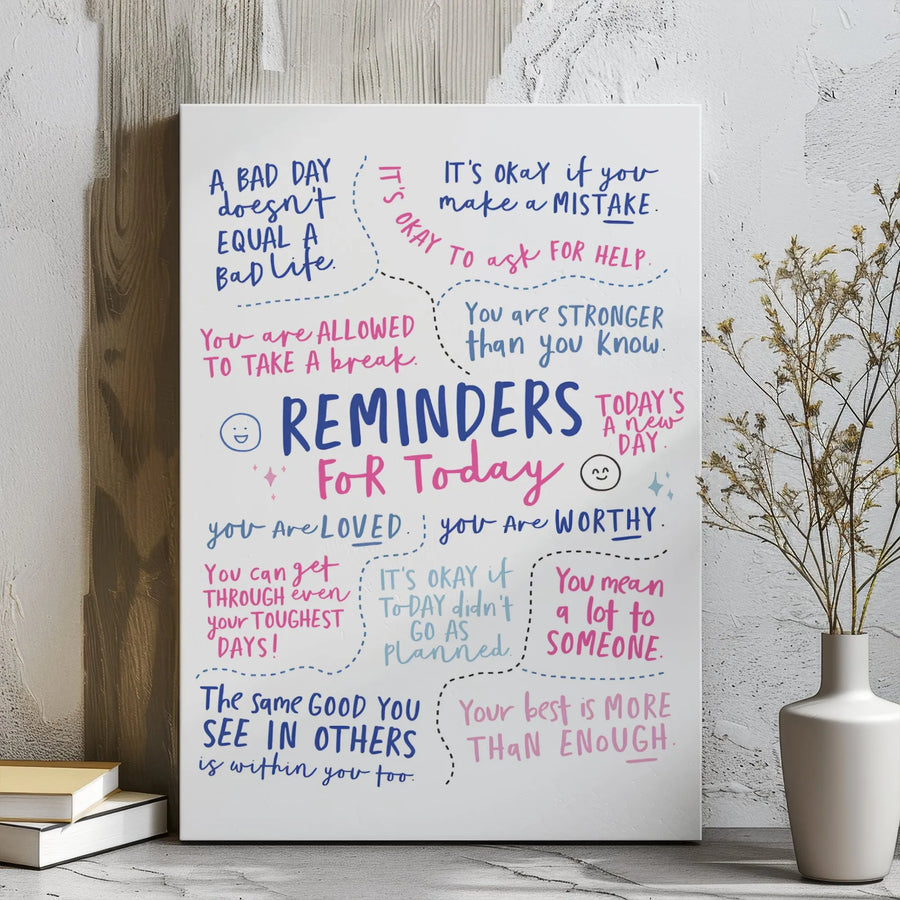 A BAD DAY
doesn't
EQUAL A
BaD Life.
IT'S OKAY TO ask FOR HELP.
IT'S OKaY if you
make a MISTAKE.
You are ALLOWED
TO TAKE A break.
You are STRONGER
than you Know.
REMINDERS
FoR Today
TODAY'S
A new
DAY.
you Are LOVED.
you Are WORTHY.
You can get
THROUGH even
your TOUGHEST
DAYS!
IT'S OKAY if
ToDAY didn't
GO AS
planned.
You mean
a lot to
SOMEONE.
The same GOOD YOU
SEE IN OTHERS
is within you too.
Your best is MORE
THaN ENOUGH.